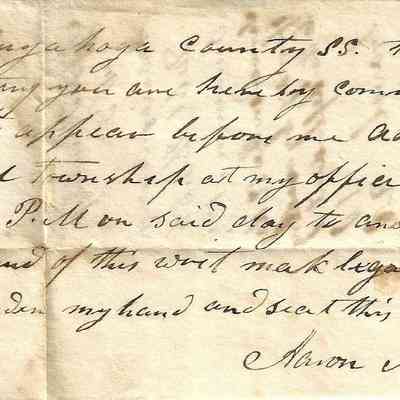 uyahoga County SS. 
ting you are hereby com
appear before me a
Township at my office
P.M on said day to an
nd of this writ mak lega
den my hand and seat this
Aaron